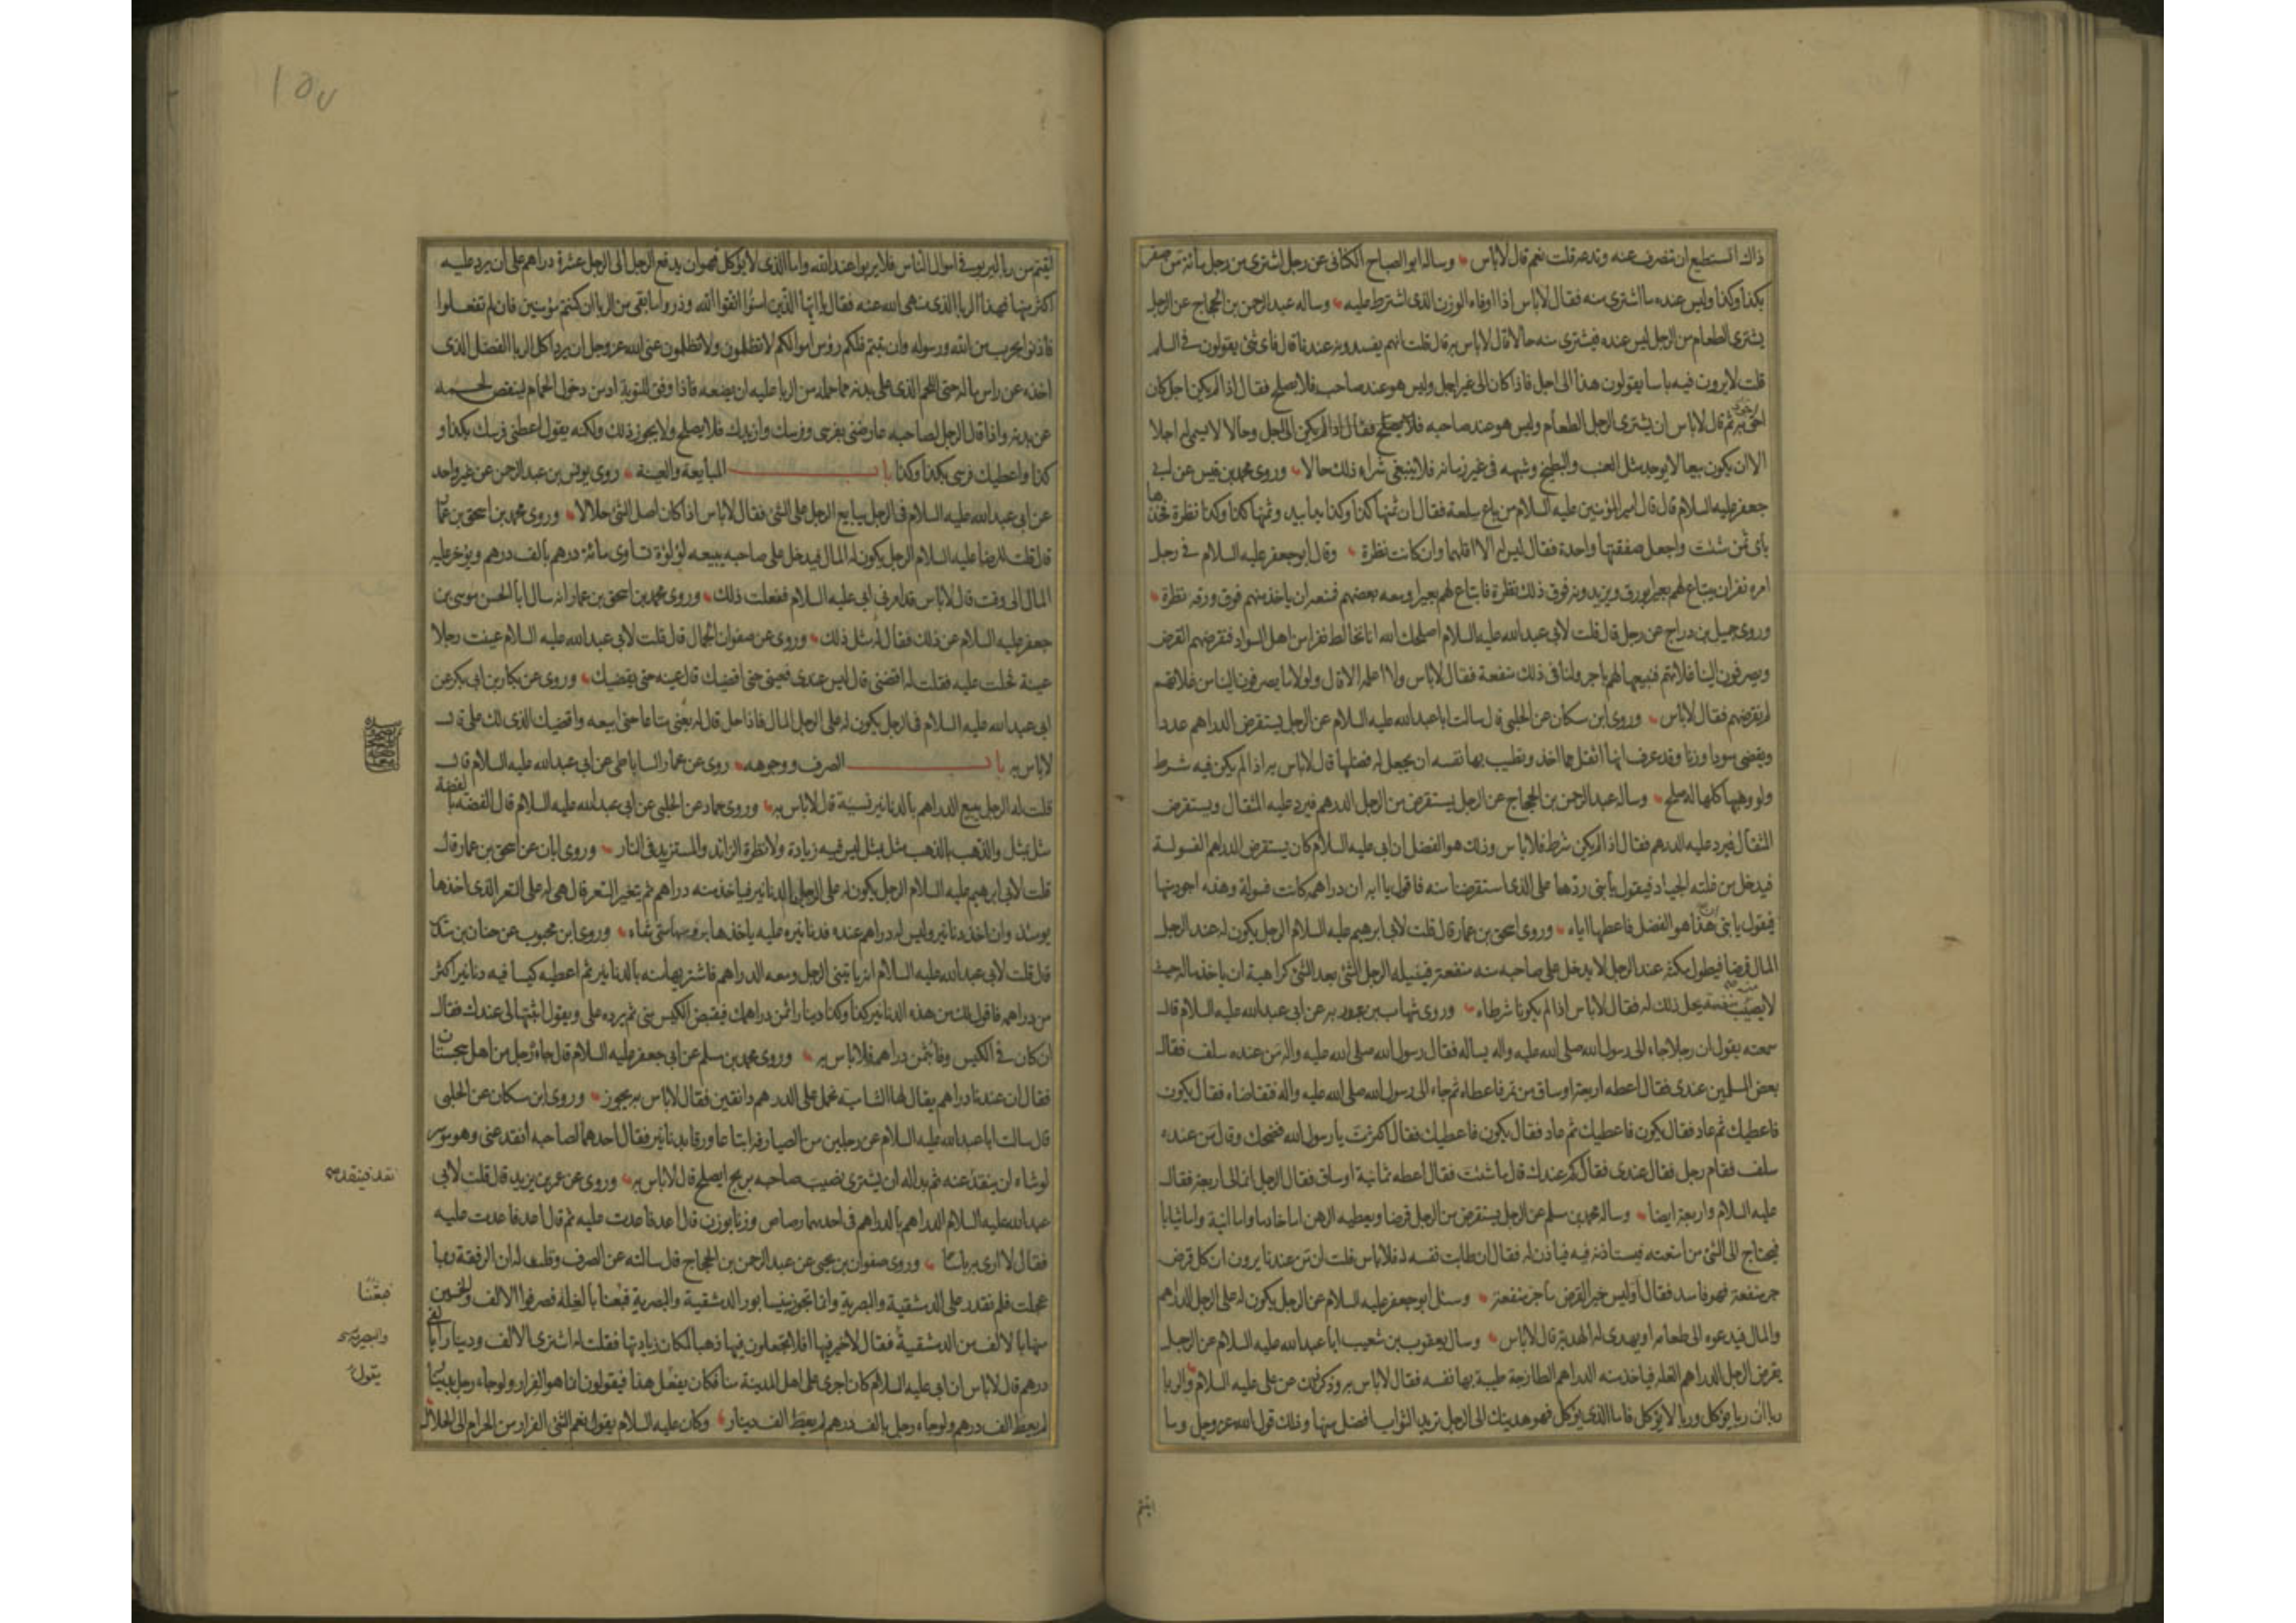 ذلك استطيع ان تصرف عنه وتدعه قلت نعم قال لا باس وساله ابو الصباح الكنانى عن رجل اشترى من رجل مائة من صفر
بكذا وكذا وليس عنده ما اشترى منه فقال لا باس اذا اوفاه الوزن الذى اشترط عليه وساله عبد الرحمن بن الحجاج عن الرجل
يشترى الطعام من الرجل ليس عنده فيشترى منه حالا قال لا باس به قال قلت انهم يفسدونه عندنا قال فاى شئ يقولون فى السلم
قلت لا يرون فيه باسا يقولون هذا الى اجل فاذا كان الى غير اجل وليس هو عند صاحبه فلا يصلح فقال اذا لم يكن اجل كان
احق به ثم قال لا باس ان يشترى الرجل الطعام وليس هو عند صاحبه فقال اذا لم يكن الى اجل وحالا لا يسمى له اجلا
الا ان يكون بيعا لا يوجد مثل العنب والبطيخ وشبهه فى غير زمانه فلا ينبغى شراء ذلك حالا وروى محمد بن قيس عن ابى
جعفر عليه السلام قال قال امير المؤمنين عليه السلام من باع سلعة فقال ان ثمنها كذا وكذا يدا بيد وثمنها كذا وكذا نظرة فخذها
باى ثمن شئت واجعل صفقتها واحدة فقال ليس له الا اقلهما وان كانت نظرة وقال ابو جعفر عليه السلام فى رجل
امره نفر ان يبتاع لهم بعيرا بورق ويزيدونه فوق ذلك نظرة فابتاع لهم بعيرا ومعه بعضهم فمنعه ان ياخذ منهم فوق ورقه نظرة
وروى جميل بن دراج عن رجل قال قلت لابى عبد الله عليه السلام اصلحك الله انا نخالط نفرا من اهل السواد فنقرضهم القرض
ويصرفون الينا غلاتهم فنبيعها لهم باجر ولنا فى ذلك منفعة فقال لا باس ولا اعلمه الا قال ولولا ما يصرفون الينا من غلاتهم
لم نقرضهم فقال لا باس وروى ابن مسكان عن الحلبى قال سالت ابا عبد الله عليه السلام عن الرجل يستقرض الدراهم عددا
ويقضى سودا وزنا وقد عرف انها اثقل مما اخذ وتطيب بها نفسه ان يجعل له فضلها قال لا باس به اذا لم يكن فيه شرط
ولو وهبها كلها له صلح وساله عبد الرحمن بن الحجاج عن الرجل يستقرض من الرجل الدرهم فيرد عليه المثقال ويستقرض
المثقال فيرد عليه الدرهم فقال اذا لم يكن شرط فلا باس وذلك هو الفضل ان ابى عليه السلام كان يستقرض الدراهم الفسولة
فيدخل من غلته الجياد فيقول يا بنى ردها على الذى استقرضنا منه فاقول يا ابه ان دراهمه كانت فسولة وهذه اجود منها
فيقول يا بنى هذا هو الفضل فاعطها اياه وروى اسحق بن عمار قال قلت لابى ابرهيم عليه السلام الرجل يكون له عند الرجل
المال قرضا فيطول مكثه عند الرجل لا يدخل على صاحبه منه منفعة فينيله الرجل الشئ بعد الشئ كراهية ان ياخذ ماله حيث
لا يصيب منه منفعة يحل ذلك له فقال لا باس اذا لم يكونا شرطاه وروى شهاب بن عبد ربه عن ابى عبد الله عليه السلام قال
سمعته يقول ان رجلا جاء الى رسول الله صلى الله عليه واله يساله فقال رسول الله صلى الله عليه واله من عنده سلف فقال
بعض المسلمين عندى فقال اعطه اربعة اوساق من تمر فاعطاه ثم جاء الى رسول الله صلى الله عليه واله فتقاضاه فقال يكون
فاعطيك ثم عاد فقال يكون فاعطيك ثم عاد فقال يكون فاعطيك فقال اكثرت يا رسول الله فضحك وقال من عنده
سلف فقام رجل فقال عندى فقال كم عندك قال ما شئت فقال اعطه ثمانية اوساق فقال الرجل انما لى اربعة فقال
عليه السلام واربعة ايضا وساله محمد بن مسلم عن الرجل يستقرض من الرجل قرضا ويعطيه الرهن اما خادما واما انية واما ثيابا
فيحتاج الى الشئ من امتعته فيستاذنه فيه فياذن له فقال ان طابت نفسه له فلا باس قلت ان من عندنا يرون ان كل قرض
جر منفعة فهو فاسد فقال اوليس خير القرض ما جر منفعة وسئل ابو جعفر عليه السلام عن الرجل يكون له على الرجل الدراهم
والمال فيدعوه الى طعامه او يهدى له الهدية قال لا باس وسال يعقوب بن شعيب ابا عبد الله عليه السلام عن الرجل
يقرض الرجل الدراهم الغلة فياخذ منه الدراهم الطازجة طيبة بها نفسه فقال لا باس به وذكر ذلك عن على عليه السلام والربا
رباان ربا يؤكل وربا لا يؤكل فاما الذى يؤكل فهو هديتك الى الرجل تريد الثواب افضل منها وذلك قول الله عز وجل وما
اتيتم
١٥٧
اتيتم من ربا ليربو فى اموال الناس فلا يربوا عند الله واما الذى لا يؤكل فهو ان يدفع الرجل الى الرجل عشرة دراهم على ان يرد عليه
اكثر منها فهذا الربا الذى نهى الله عنه فقال يا ايها الذين امنوا اتقوا الله وذروا ما بقى من الربا ان كنتم مؤمنين فان لم تفعلوا
فاذنوا بحرب من الله ورسوله وان تبتم فلكم رؤس اموالكم لا تظلمون ولا تظلمون عنى الله عز وجل ان يرد اكل الربا الفضل الذى
اخذه عن راس ماله حتى اللحم الذى على بدنه مما حمله من الربا عليه ان يضعه فاذا وفق للتوبة ادمن دخول الحمام لينقص لحمه
عن بدنه واذا قال الرجل لصاحبه عاوضنى بفرسى وفرسك وازيدك فلا يصلح ولا يجوز ذلك ولكنه يقول اعطنى فرسك بكذا و
كذا واعطيك فرسى بكذا وكذا باب المبايعة والعينة روى يونس بن عبد الرحمن عن غير واحد
عن ابى عبد الله عليه السلام فى الرجل يبايع الرجل على الشئ فقال لا باس اذا كان اصل الشئ حلالا وروى محمد بن اسحق بن عمار
قال قلت للرضا عليه السلام الرجل يكون له المال فيدخل على صاحبه يبيعه لؤلؤة تساوى مائة درهم بالف درهم ويؤخر عليه
المال الى وقت قال لا باس قد امرنى ابى عليه السلام ففعلت ذلك وروى محمد بن اسحق بن عمار انه سال ابا الحسن موسى بن
جعفر عليه السلام عن ذلك فقال له مثل ذلك وروى عن صفوان الجمال قال قلت لابى عبد الله عليه السلام عينت رجلا
عينة فحلت عليه فقلت له اقضنى قال ليس عندى فعينى حتى اقضيك قال عينه حتى يقضيك وروى عن بكار بن ابى بكر عن
ابى عبد الله عليه السلام فى الرجل يكون له على الرجل المال فاذا حل قال له بعنى متاعا حتى ابيعه واقضيك الذى لك على قال
لا باس به باب الصرف ووجوهه روى عن عمار الساباطى عن ابى عبد الله عليه السلام قال
قلت له الرجل يبيع الدراهم بالدنانير نسية قال لا باس به وروى حماد عن الحلبى عن ابى عبد الله عليه السلام قال الفضة بالفضة
مثل بمثل والذهب بالذهب مثل بمثل ليس فيه زيادة ولا نظرة الزائد والمستزيد فى النار وروى ابان عن اسحق بن عمار قال
قلت لابى ابرهيم عليه السلام الرجل يكون له على الرجل الدنانير فياخذ منه دراهم ثم يتغير السعر قال هى له على السعر الذى اخذها
يومئذ وان اخذ دنانير وليس له دراهم عنده فدنانيره عليه ياخذها برؤسها متى شاء وروى ابن محبوب عن حنان بن سدير
قال قلت لابى عبد الله عليه السلام انه ياتينى الرجل ومعه الدراهم فاشتريها منه بالدنانير ثم اعطيه كيسا فيه دنانير اكثر
من دراهمه فاقول لك من هذه الدنانير كذا وكذا دينارا ثمن دراهمك فيقبض الكيس منى ثم يرده على ويقول اثبتها لى عندك فقال
ان كان فى الكيس وفاء بثمن دراهمه فلا باس به وروى محمد بن مسلم عن ابى جعفر عليه السلام قال جاءه رجل من اهل سجستان
فقال ان عندنا دراهم يقال لها الشامية تحمل على الدرهم دانقين فقال لا باس به يجوز وروى ابن مسكان عن الحلبى
قال سالت ابا عبد الله عليه السلام عن رجلين من الصيارفة ابتاعا ورقا بدنانير فقال احدهما لصاحبه انقد عنى وهو موسر
لو شاء ان ينقد عنه ثم بدا له ان يشترى نصيب صاحبه بربح ايصلح قال لا باس به وروى عن عمر بن يزيد قال قلت لابى
عبد الله عليه السلام الدراهم بالدراهم فى احدهما رصاص وزنا بوزن قال اعد فاعدت عليه ثم قال اعد فاعدت عليه
فقال لا ارى به باسا وروى صفوان بن يحيى عن عبد الرحمن بن الحجاج قال سالته عن الصرف وقلت له ان الرفقة ربما
عجلت فلم نقدر على الدمشقية والبصرية وانما تجوز بنيسابور الدمشقية والبصرية فبعثنا بالغلة فصرفوا الالف والخمسين
منها بالالف من الدمشقية فقال لا خير فيها افلا تجعلون فيها ذهبا لمكان زيادتها فقلت له اشترى الالف ودينارا بالفى
درهم قال لا باس ان ابى عليه السلام كان اجرى على اهل المدينة منا فكان يفعل هذا فيقولون انما هو الفرار ولو جاء رجل بدينار
لم يعط الف درهم ولو جاء رجل بالف درهم لم يعط الف دينار وكان عليه السلام يقول نعم الشئ الفرار من الحرام الى الحلال
فبعثنا
يقول